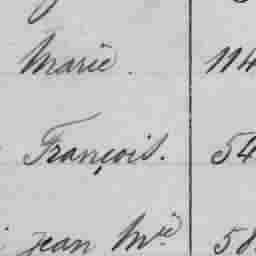 Marie. 114
François. 54
jean Mie 58